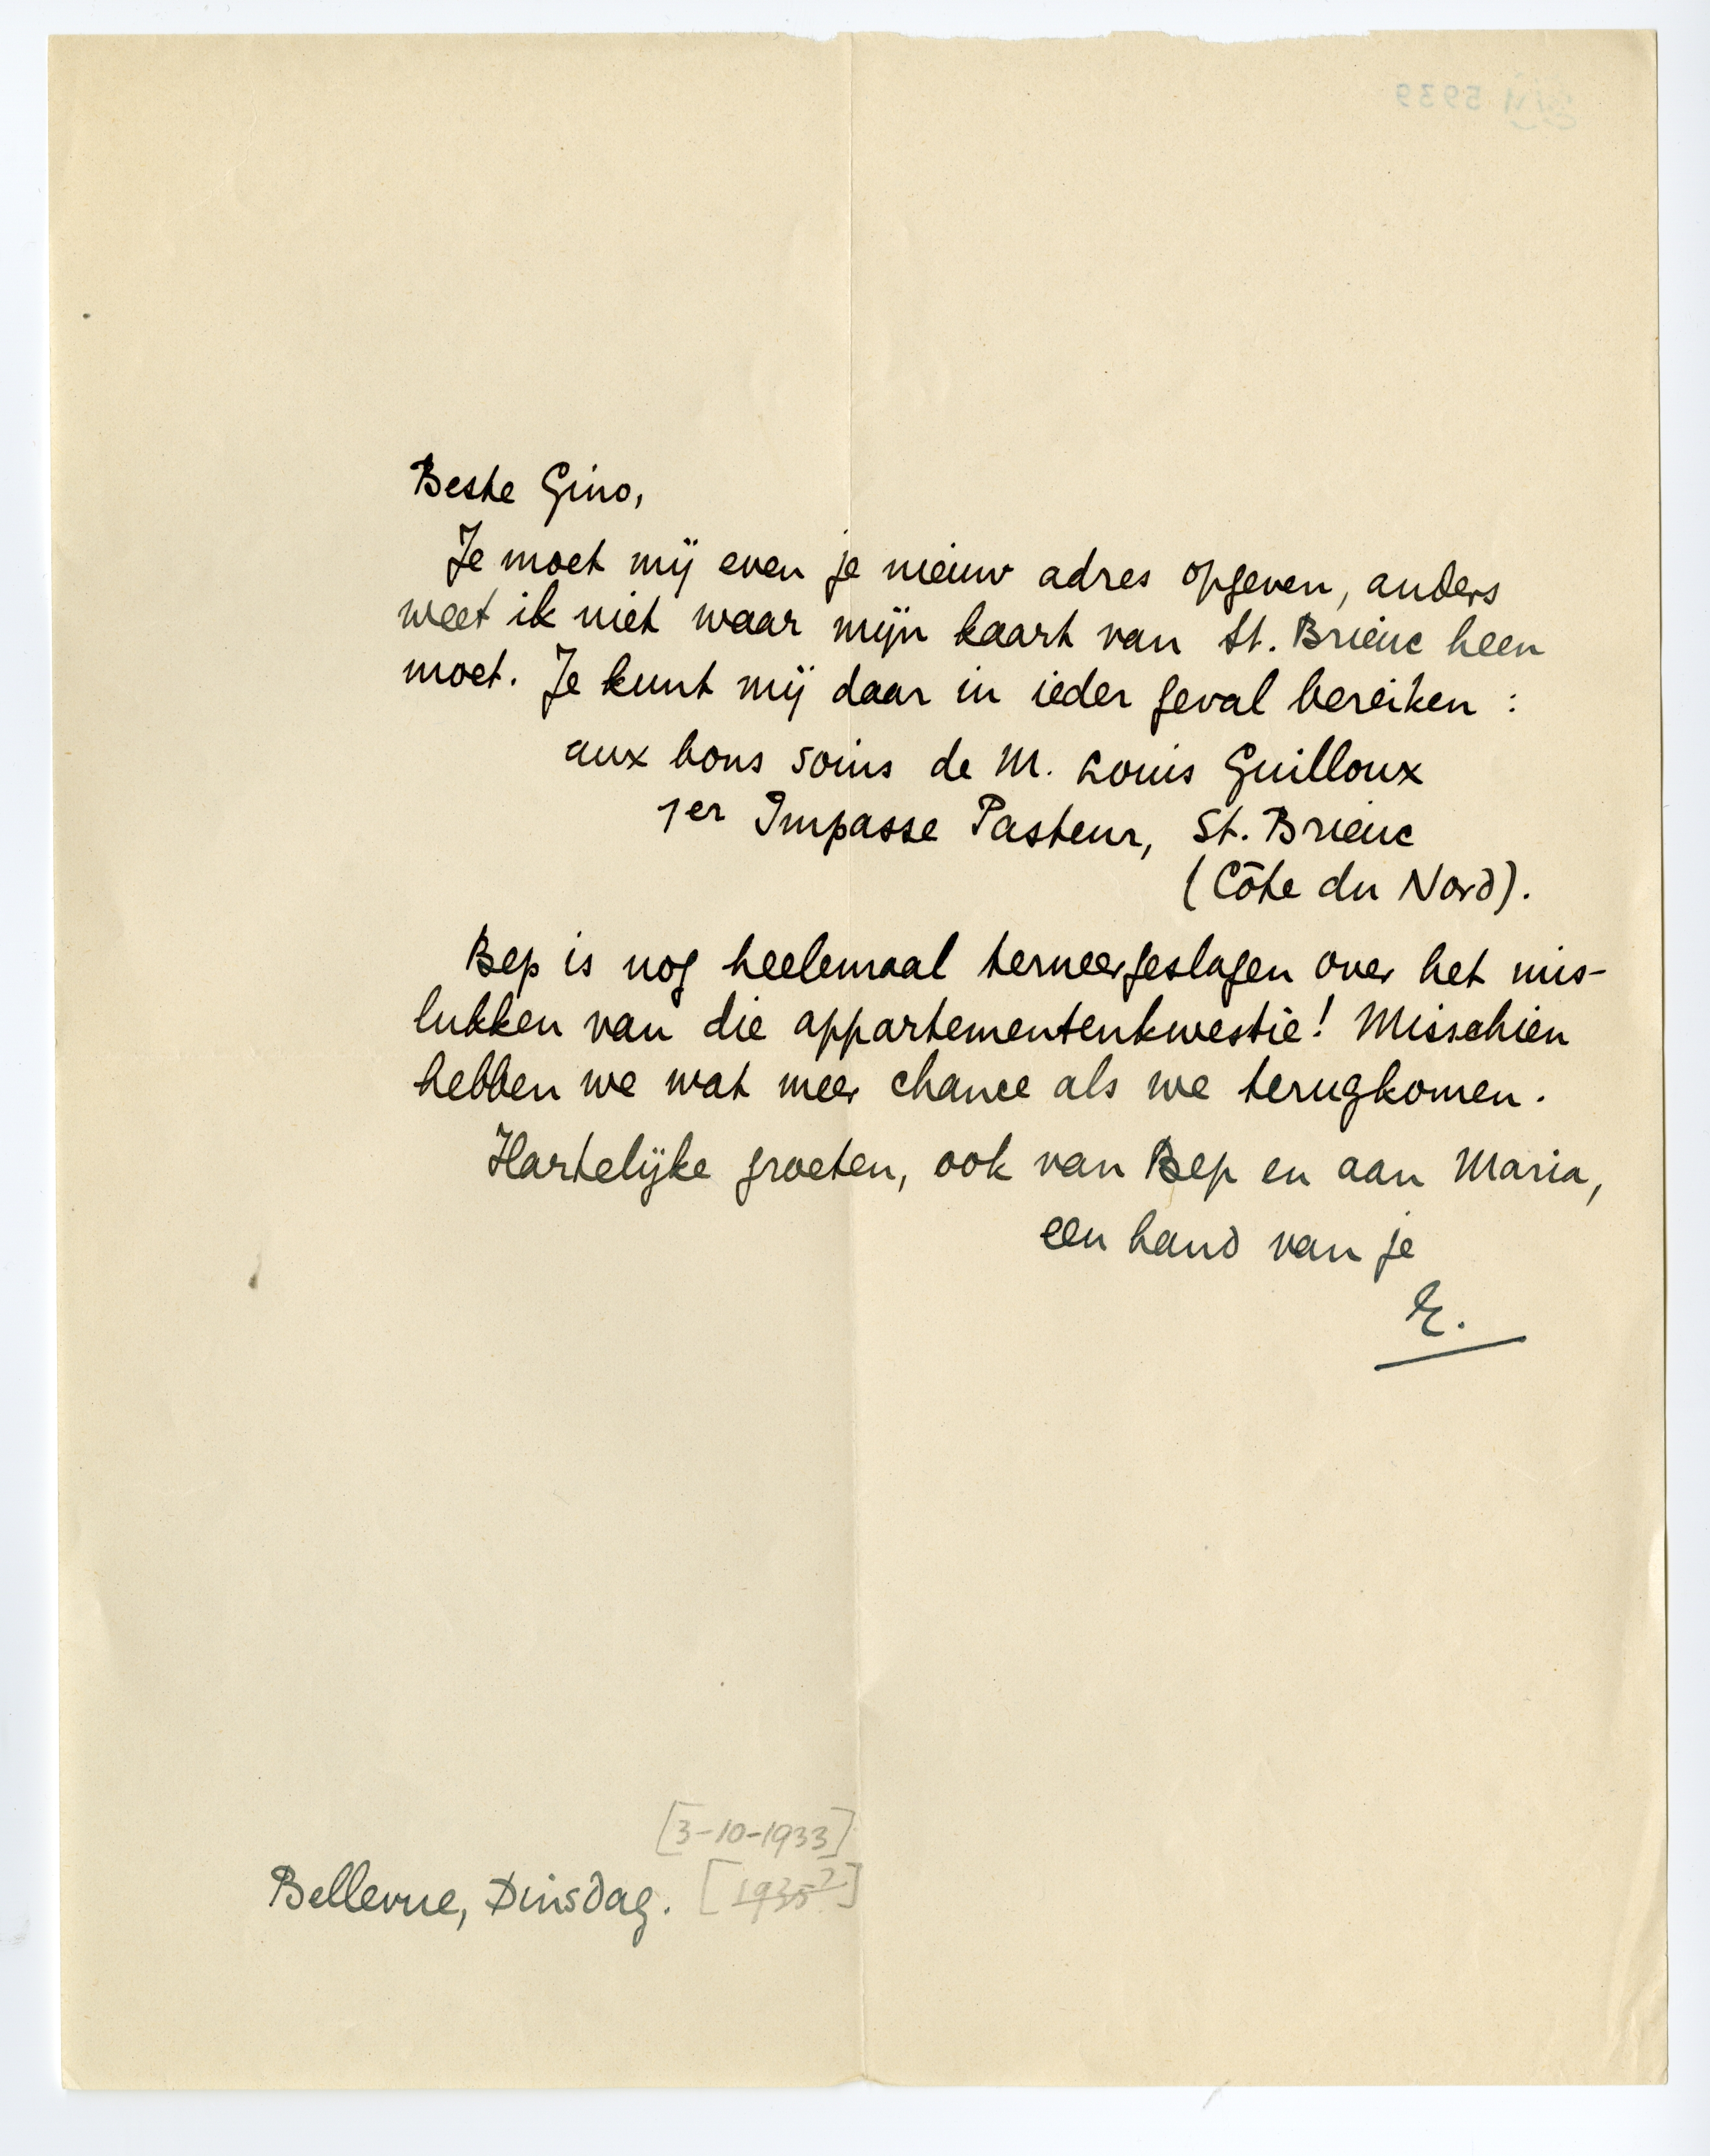 Beste Gino,
Je moet mij even je nieuw adres opgeven, anders
weet ik niet waar mijn kaart van St. Brieuc heen
moet. Je kunt mij daar in ieder geval bereiken :
aux bons soins de M. Louis Guilloux
1er Impasse Pasteur, St. Brieuc
(Côte du Nord).
Bep is nog heelemaal terneergeslagen over het mis-
lukken van die appartementenkwestie! Misschien
hebben we wat meer chance als we terugkomen.
Hartelijke groeten, ook van Bep en aan Maria,
een hand van je
E.
[3-10-1933]
Bellevue, Dinsdag. [1935?]